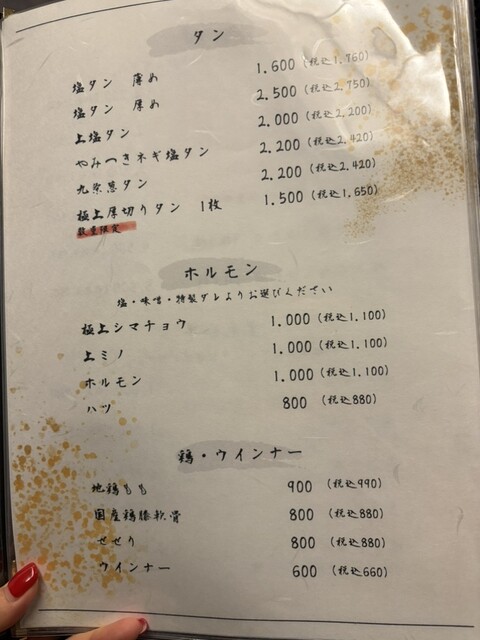 タン
塩タン 薄め 1.600 (税込1.760)
塩タン 厚め 2.500 (税込2.750)
上塩タン 2.000 (税込2.200)
やみつきネギ塩タン 2.200 (税込2.420)
九条葱タン 2.200 (税込2.420)
極上厚切りタン 1枚 1.500 (税込1,650)
数量限定
ホルモン
塩・味噌・特製ダレよりお選びください
極上シマチョウ 1.000 (税込1.100)
上ミノ 1.000 (税込1.100)
ホルモン 1.000 (税込1.100)
ハツ 800 (税込880)
鶏・ウインナー
地鶏もも 900 (税込990)
国産鶏膝軟骨 800 (税込880)
せせり 800 (税込880)
ウインナー 600 (税込660)